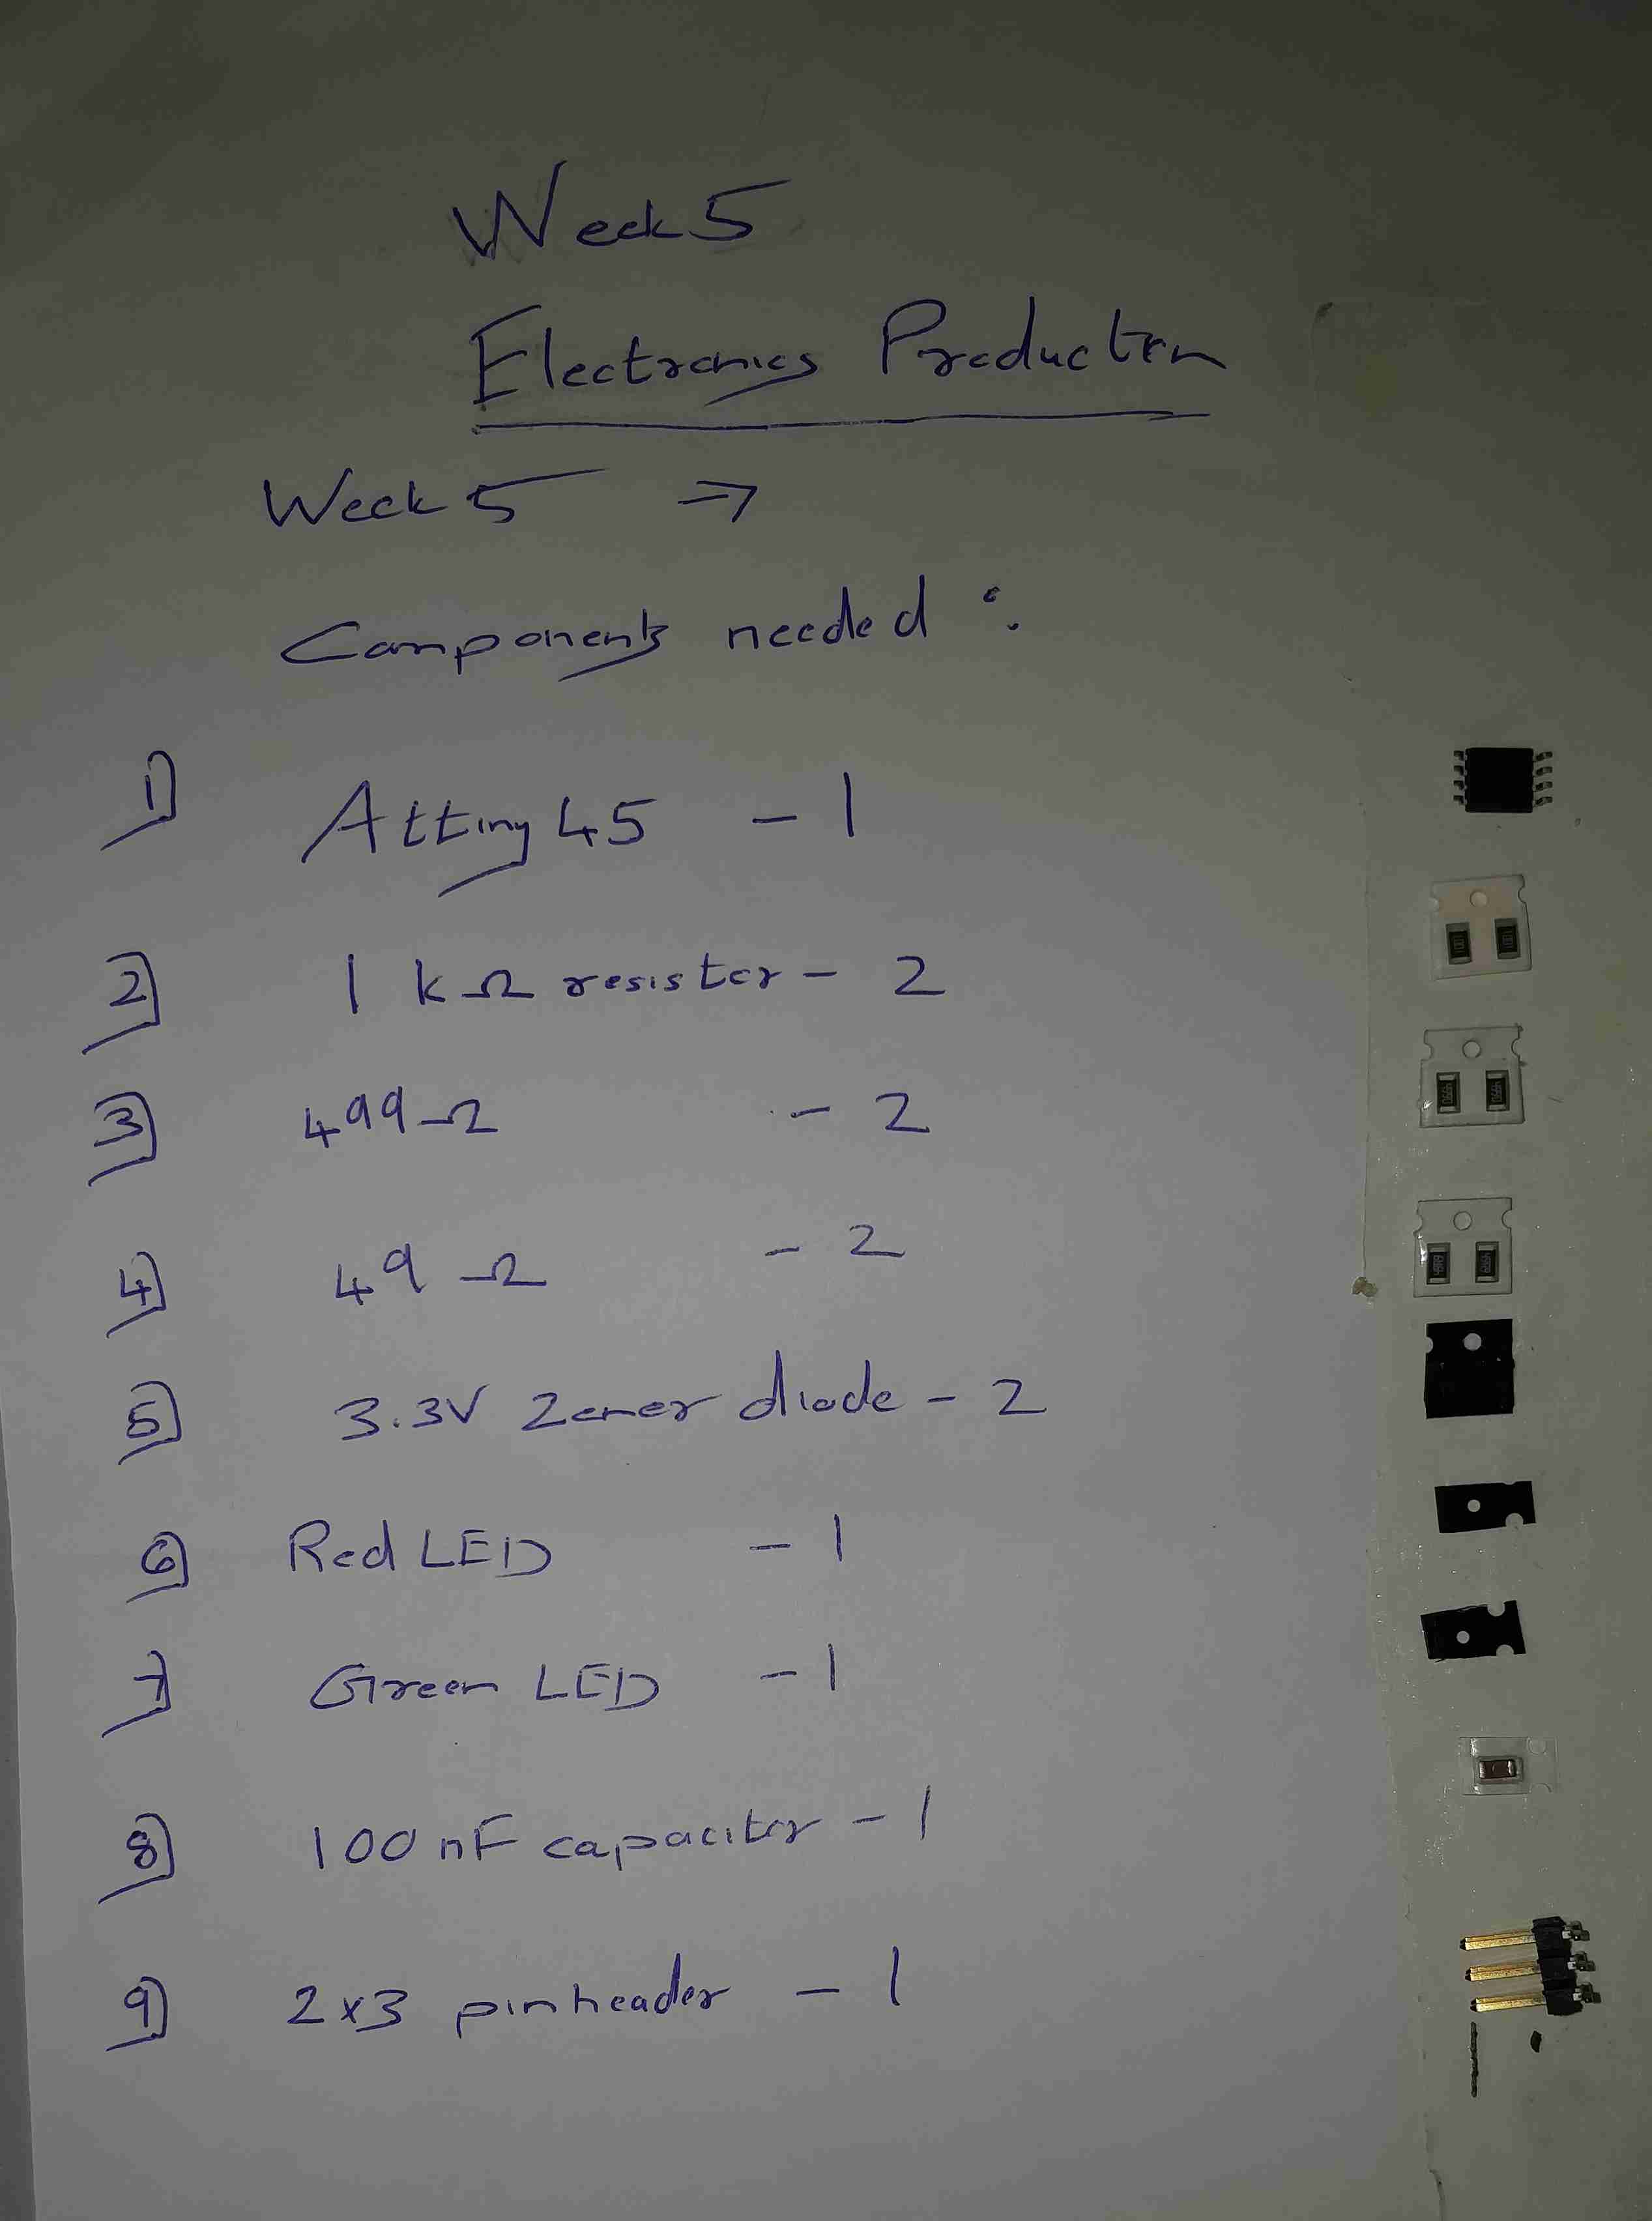 Week 5
Electronics Production
Week 5 →
Components needed :
1) Attiny 45 - 1
2) 1 kΩ resistor - 2
3) 499 Ω - 2
4) 49 Ω - 2
5) 3.3V Zener diode - 2
6) Red LED - 1
7) Green LED - 1
8) 100 nF capacitor - 1
9) 2x3 pinheader - 1